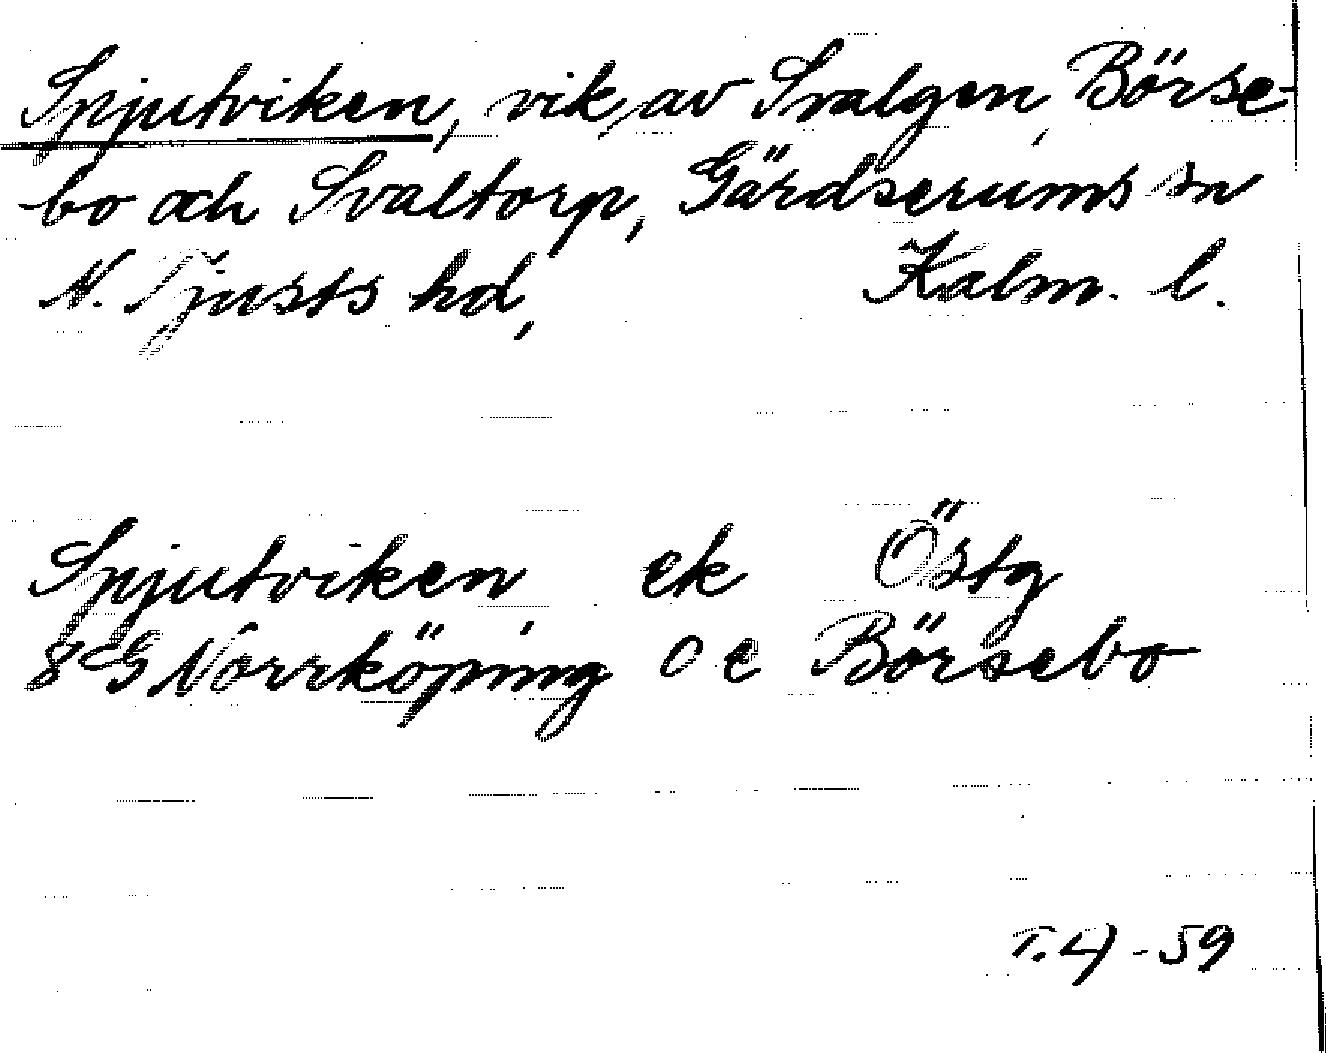 Spjutviken, vik av Svalgen, Börse-
bo och Svaltorp, Gärdserums sn
N. Tjusts hd, Kalm. l.
Spjutviken, ek Östg
8 G Norrköping O e Börsebo
T.4)-59